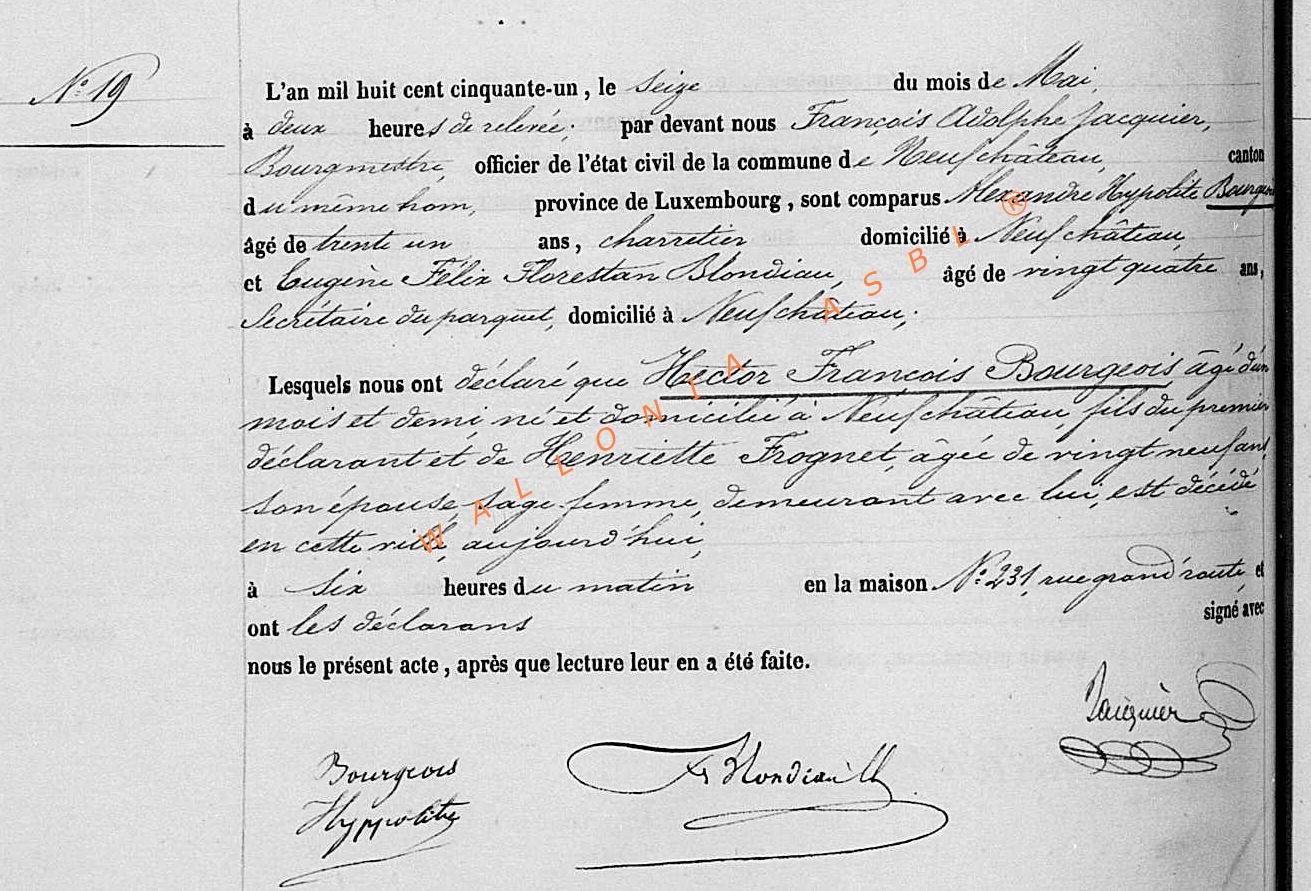 N.° 19
L'an mil huit cent cinquante-un, le seize du mois de Mai,
à deux heures de relevée; par devant nous François Adolphe Jacquier,
Bourgmestre, officier de l'état civil de la commune de Neufchâteau, canton
du même nom, province de Luxembourg, sont comparus Alexandre Hypolite Bourgeois
âgé de trente un ans, charretier domicilié à Neufchâteau,
et Eugène Félix Florestan Blondiau, âgé de vingt quatre ans,
Secrétaire du parquet, domicilié à Neufchâteau;
Lesquels nous ont déclaré que Hector François Bourgeois âgé d'un
mois et demi, né et domicilié à Neufchâteau, fils du premier
déclarant et de Henriette Frognet, agée de vingt neuf ans,
son épouse, sage femme, demeurant avec lui, est décédé
en cette ville, aujourd'hui,
à six heures du matin en la maison N.° 231, rue grand'route, et
ont les déclarans signé avec
nous le présent acte, après que lecture leur en a été faite.
Jacquier
Bourgeois
Hyppolite
Blondiau
WALLONIA ASBL ®